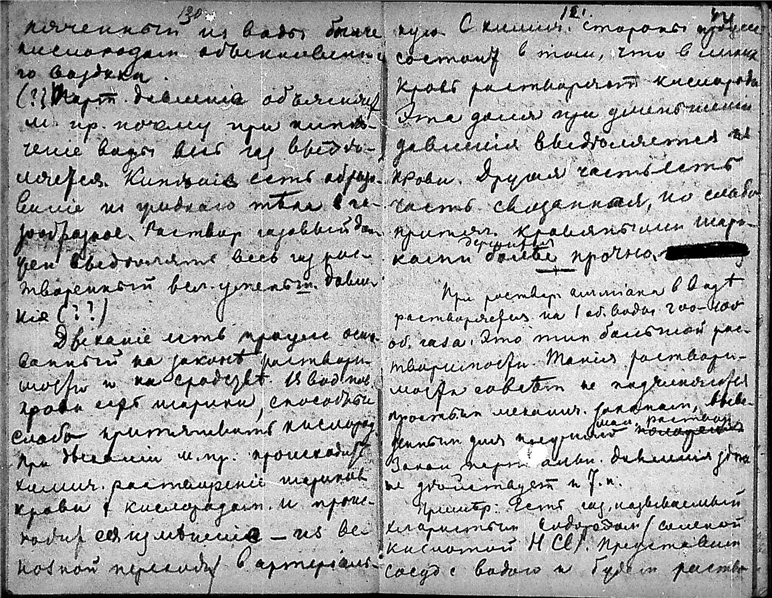 130
няченный из воды богаче
кислородом обыкновенно-
го воздуха.
(??) Парт. давление объясняет
м. пр. почему при кипя-
чение воды весь газ выдѣ-
ляется. Кипѣние есть образо-
вание из жидкаго тѣла в га-
зообразное. Раствор газовый дол
жен выдѣлять весь газ рас-
творенный вслѣд. давле-
ния (??)
Дыхание есть процес осно-
ванный на законѣ раствори-
мости и на сродствѣ. В
крови есть шарики, способные
слабо притягивать кислород
При дыхании м. пр. происходит
химич. растворение шариков
крови с кислородом и проис-
ходит ея измѣнение — из ве
нозной переходит в артериаль-
131
ную. С химич. стороны процесс
состоит в том, что в
кровь растворяет кислорода
Эта доля при уменьшении
давления выдѣляется из
крови. Другая часть есть
часть связанная, но слабо
притяг. кровяными шари-
ками более прочно.
держится
При раствор. аммиака в водѣ
растворяется на 1 об. воды 700-
об. газа. Это тип большой рас-
творимости. Такия раствори-
мости совсѣм не подчиняются
простым механич. законам, выве-
денным для
Закон парт. давления здѣсь
не дѣйствует и т. п.
Пример: Есть газ, называемый
хлористым водородом (соляной
кислотой HCl). Представим
сосуд с водою и будем раство